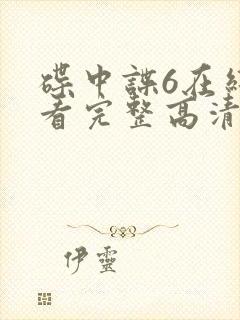 碟中諜6在
看完整高清
伊靈